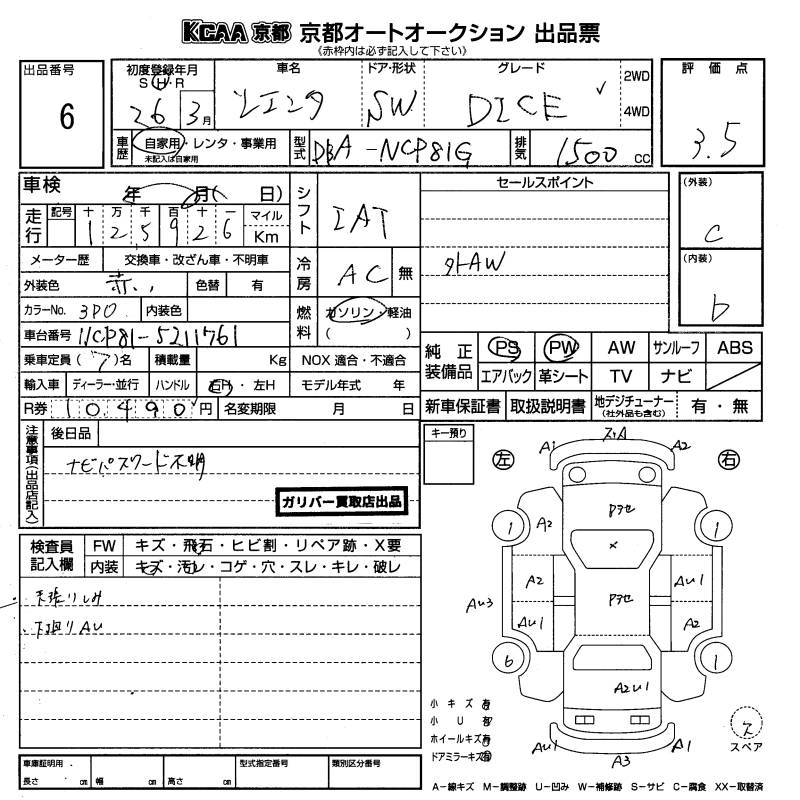 KCAA 京都 京都オートオークション 出品票
《赤枠内は必ず記入して下さい》
出品番号 6
初度登録年月 S・H・R 26 3月
車名 シエンタ
ドア・形状 SW
グレード DICE
2WD
4WD
評価点 3.5
車歴 自家用・レンタ・事業用
未記入は自家用
型式 DBA-NCP81G
排気 1500 cc
車検 年 月( 日)
走行 記号 十 万 千 百 十 一 マイル
1 2 5 9 2 6 Km
シフト IAT
セールスポイント
外AW
(外装) C
(内装) b
メーター歴 交換車・改ざん車・不明車
冷房 AC 無
外装色 赤 色替 有
カラーNo. 3P0 内装色
燃料 ガソリン・軽油
( )
車台番号 NCP81-5211761
乗車定員(7)名 積載量 Kg NOX適合・不適合
輸入車 ディーラー・並行 ハンドル 右H・左H モデル年式 年
R券 10490円 名変期限 月 日
純正装備品 PS PW AW サンルーフ ABS
エアバック 革シート TV ナビ
新車保証書 取扱説明書 地デジチューナー(社外品も含む) 有・無
注意事項(出品店記入)
後日品
ナビパスワード不明
ガリバー買取店出品
キー預り
検査員記入欄 FW キズ・飛石・ヒビ割・リペア跡・X要
内装 キズ・汚レ・コゲ・穴・スレ・キレ・破レ
天張りしみ
下廻りAU
左 右
A1 A2
1 A2 Pヲセ 1
×
A2 Pヲセ AU1
AU3 AU1 A2
6 1
A2U1
AU1 A3 A1
ス
スペア
小キズ有
小U有
ホイールキズ有
ドアミラーキズ有
車庫証明用
長さ cm 幅 cm 高さ cm
型式指定番号
類別区分番号
A-線キズ M-調整跡 U-凹み W-補修跡 S-サビ C-腐食 XX-取替済